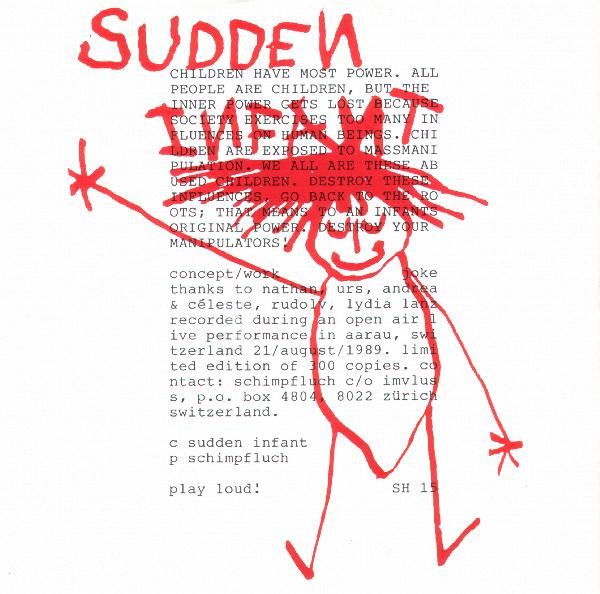 SUDDEN
CHILDREN HAVE MOST POWER. ALL
PEOPLE ARE CHILDREN, BUT THE
INNER POWER GETS LOST BECAUSE
INFANT
SOCIETY EXERCISES TOO MANY IN
FLUENCES ON HUMAN BEINGS. CHI
LDREN ARE EXPOSED TO MASSMANI
PULATION. WE ALL ARE THESE AB
USED CHILDREN. DESTROY THESE
INFLUENCES, GO BACK TO THE RO
OTS; THAT MEANS TO AN INFANTS
ORIGINAL POWER. DESTROY YOUR
MANIPULATORS!
concept/work joke
thanks to nathan, urs, andrea
& céleste, rudolv, lydia lanz
recorded during an open air l
ive performance in aarau, swi
tzerland 21/august/1989. limi
ted edition of 300 copies. co
ntact: schimpfluch c/o imvlus
s, p.o. box 4804, 8022 zürich
switzerland.
c sudden infant
p schimpfluch
play loud! SH 15